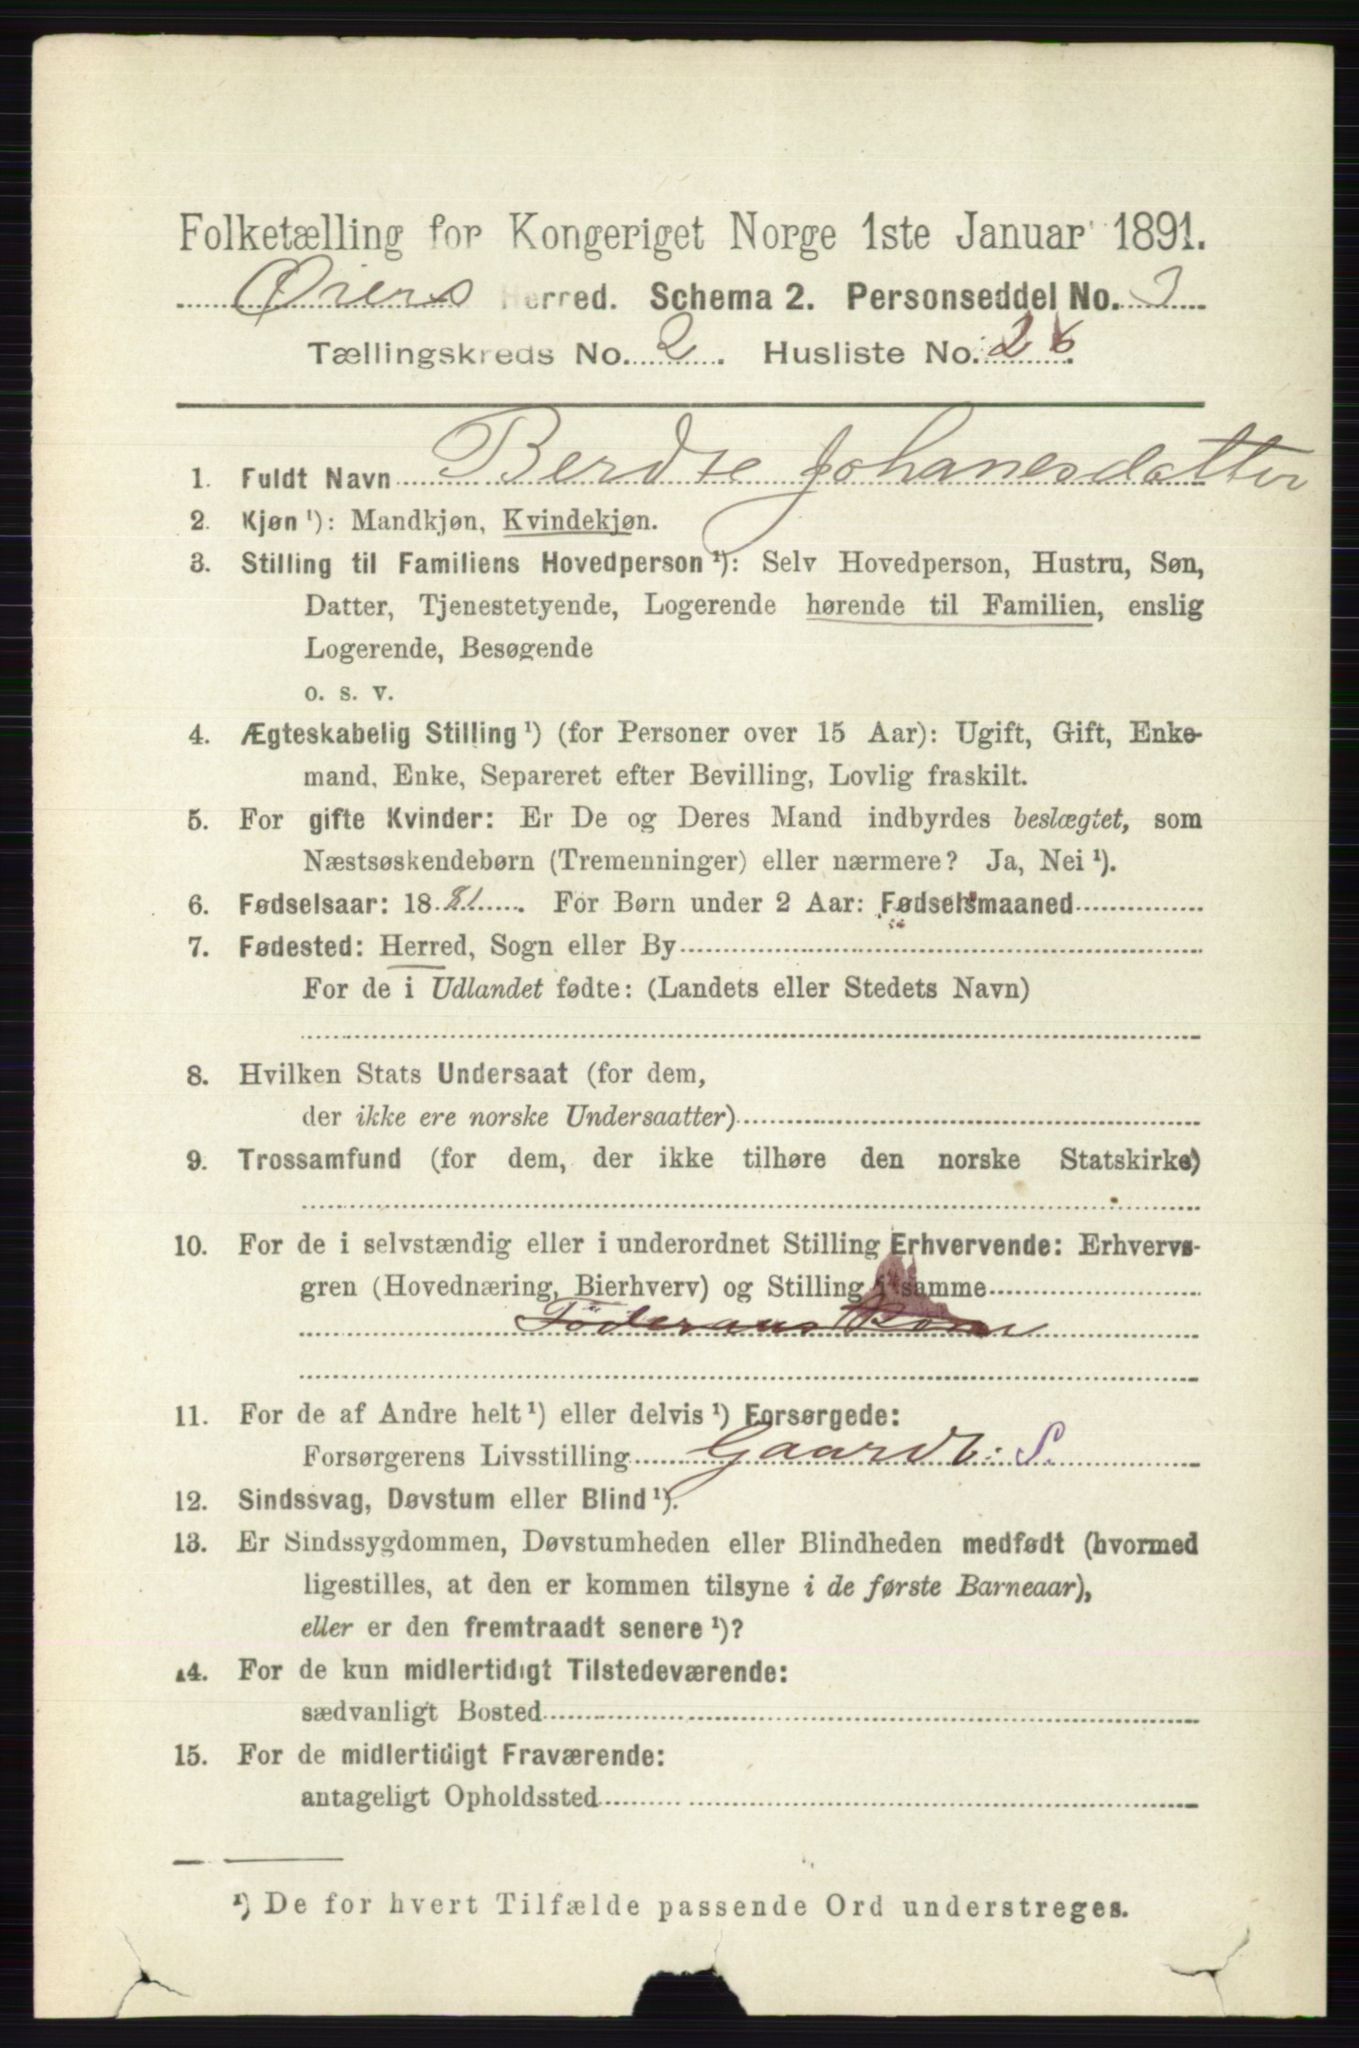 Folketælling for Kongeriget Norge 1ste Januar 1891.
Øiers Herred. Schema 2. Personseddel No. 3
Tællingskreds No. 2. Husliste No. 26
1. Fuldt Navn Berdte Johanesdatter
2. Kjøn ¹): Mandkjøn, Kvindekjøn.
3. Stilling til Familiens Hovedperson ¹): Selv Hovedperson, Hustru, Søn,
Datter, Tjenestetyende, Logerende hørende til Familien, enslig
Logerende, Besøgende
o. s. v.
4. Ægteskabelig Stilling ¹) (for Personer over 15 Aar): Ugift, Gift, Enke-
mand, Enke, Separeret efter Bevilling, Lovlig fraskilt.
5. For gifte Kvinder: Er De og Deres Mand indbyrdes beslægtet, som
Næstsøskendebørn (Tremenninger) eller nærmere? Ja, Nei ¹).
6. Fødselsaar: 1881. For Børn under 2 Aar: Fødselsmaaned
7. Fødested: Herred, Sogn eller By
For de i Udlandet fødte: (Landets eller Stedets Navn)
8. Hvilken Stats Undersaat (for dem,
der ikke ere norske Undersaatter)
9. Trossamfund (for dem, der ikke tilhøre den norske Statskirke)
10. For de i selvstændig eller i underordnet Stilling Erhvervende: Erhvervs-
gren (Hovednæring, Bierhverv) og Stilling i samme
Föderaus
11. For de af Andre helt ¹) eller delvis ¹) Forsørgede:
Forsørgerens Livsstilling Gaardb: S.
12. Sindssvag, Døvstum eller Blind ¹).
13. Er Sindssygdommen, Døvstumheden eller Blindheden medfødt (hvormed
ligestilles, at den er kommen tilsyne i de første Barneaar),
eller er den fremtraadt senere ¹)?
14. For de kun midlertidigt Tilstedeværende:
sædvanligt Bosted
15. For de midlertidigt Fraværende:
antageligt Opholdssted
¹) De for hvert Tilfælde passende Ord understreges.